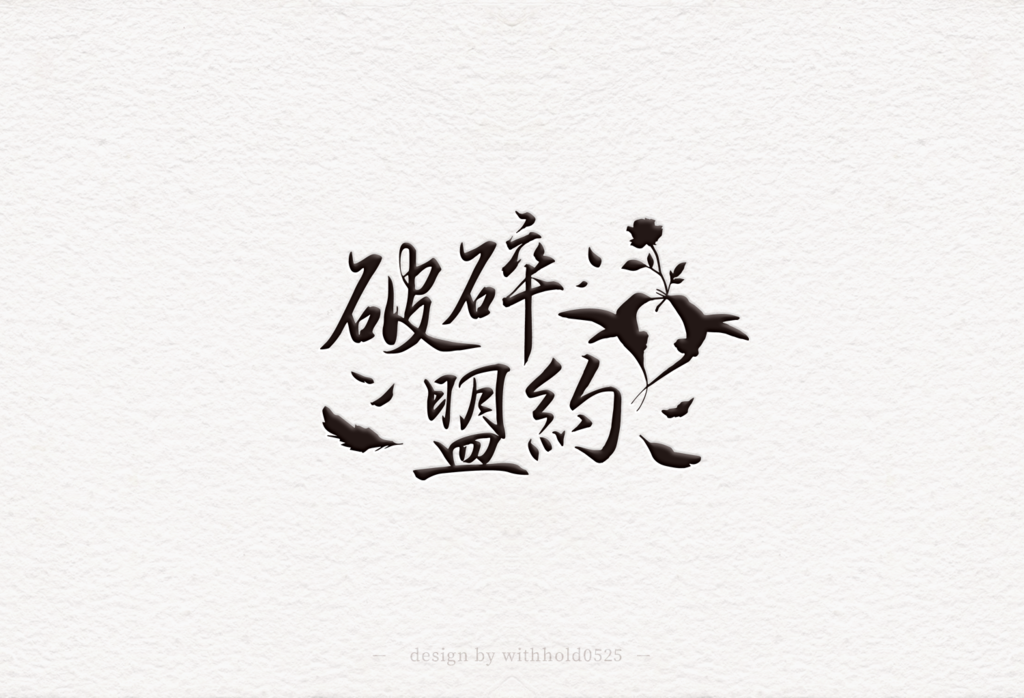 破碎
盟約
— design by withhold0525 —